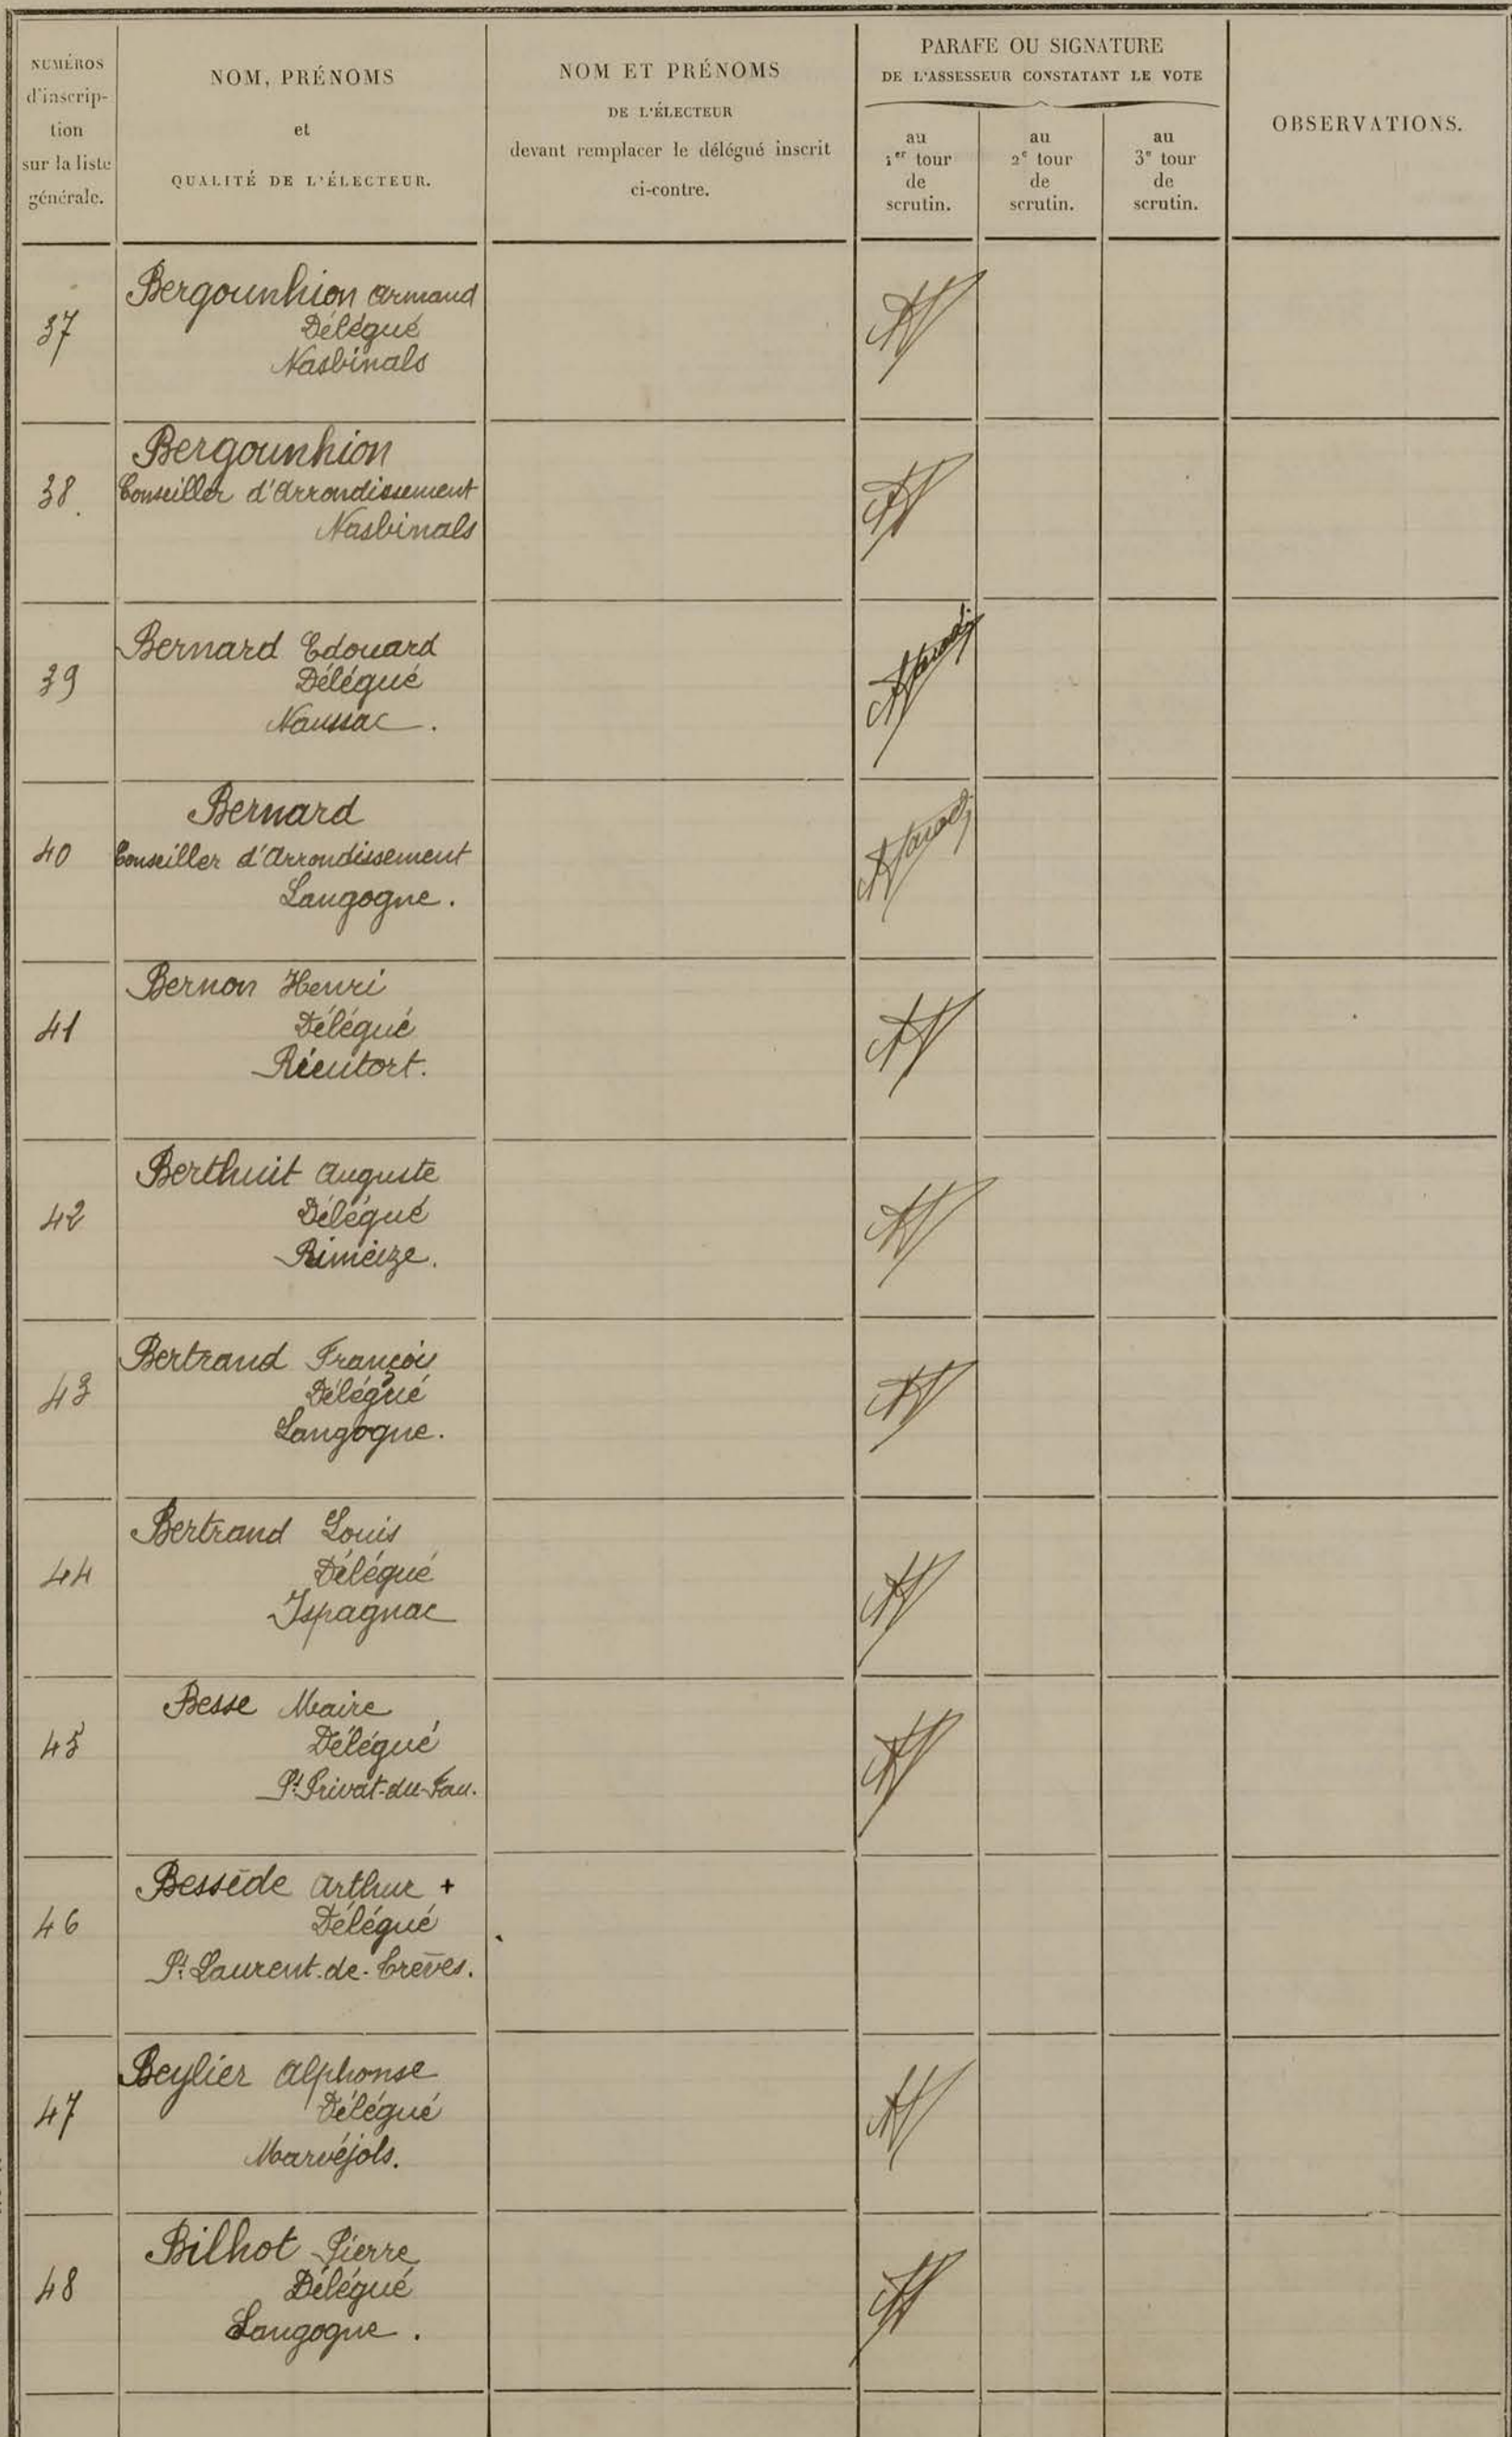 NUMÉROS
d'inscrip-
tion
sur la liste
générale.
NOM, PRÉNOMS
et
QUALITÉ DE L'ÉLECTEUR.
NOM ET PRÉNOMS
DE L'ÉLECTEUR
devant remplacer le délégué inscrit
ci-contre.
PARAFE OU SIGNATURE
DE L'ASSESSEUR CONSTATANT LE VOTE
au
1er tour
de
scrutin.
au
2e tour
de
scrutin.
au
3e tour
de
scrutin.
OBSERVATIONS.
37
Bergounhion Armand
Délégué
Nasbinals
38.
Bergounhion
Conseiller d'Arrondissement
Nasbinals
39
Bernard Edouard
Délégué
Naussac.
40
Bernard
Conseiller d'Arrondissement
Langogne.
41
Bernon Henri
Délégué
Rieutort.
42
Berthuit Auguste
Délégué
Rimeize.
43
Bertrand François
Délégué
Langogne.
44
Bertrand Louis
Délégué
Ispagnac
45
Besse Maire
Délégué
St Privat-du-Fau.
46
Bessède Arthur +
Délégué
St Laurent-de-Trèves.
47
Beylier Alphonse
Délégué
Marvéjols.
48
Bilhot Pierre
Délégué
Langogne.